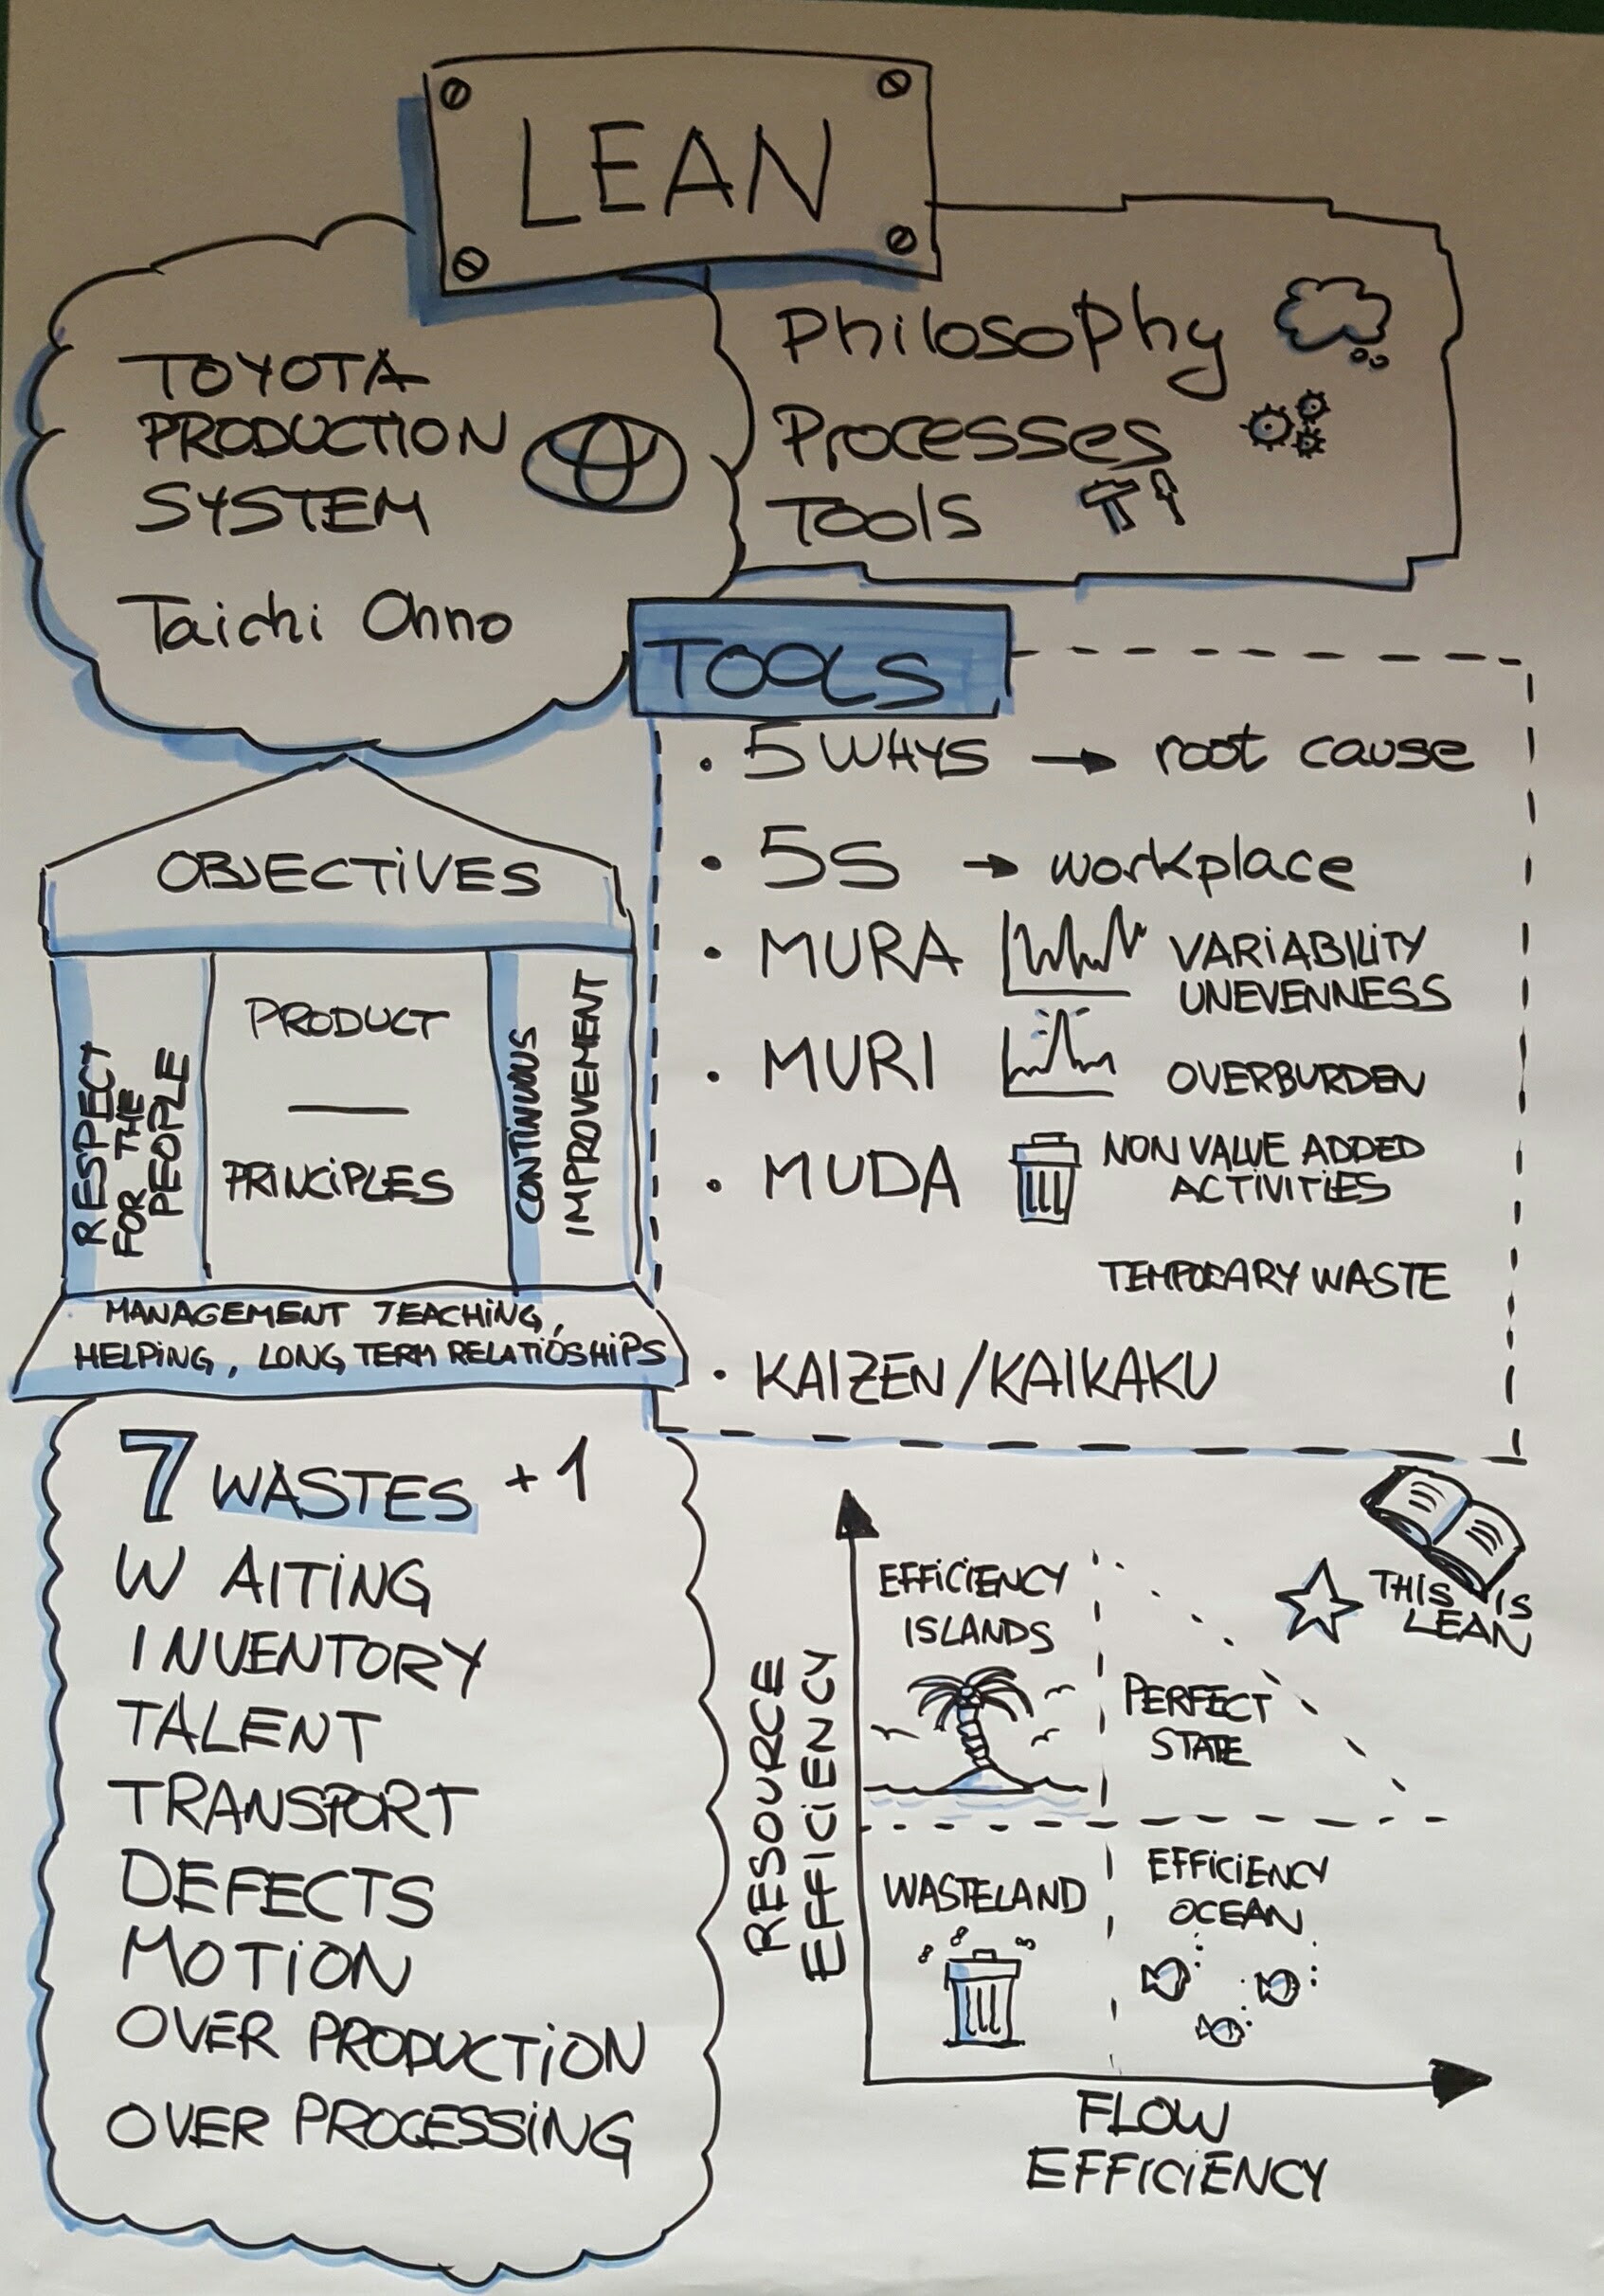 LEAN
TOYOTA
PRODUCTION
SYSTEM
Taichi Ohno
Philosophy
Processes
Tools
TOOLS
• 5 WHYS → root cause
• 5S → workplace
• MURA VARIABILITY
UNEVENNESS
• MURI OVERBURDEN
• MUDA NON VALUE ADDED
ACTIVITIES
TEMPORARY WASTE
• KAIZEN/KAIKAKU
OBJECTIVES
RESPECT
FOR THE
PEOPLE
PRODUCT
PRINCIPLES
CONTINUOUS
IMPROVEMENT
MANAGEMENT TEACHING,
HELPING, LONG TERM RELATIOSHIPS
7 WASTES + 1
WAITING
INVENTORY
TALENT
TRANSPORT
DEFECTS
MOTION
OVER PRODUCTION
OVER PROCESSING
RESOURCE
EFFICIENCY
EFFICIENCY
ISLANDS
THIS IS
LEAN
PERFECT
STATE
WASTELAND
EFFICIENCY
OCEAN
FLOW
EFFICIENCY